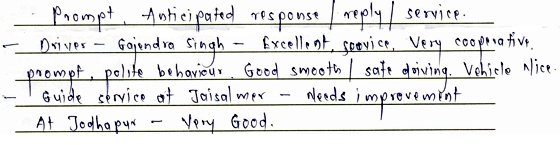 Prompt, Anticipated response / reply / service.
- Driver - Gajendra Singh - Excellent, service, Very cooperative,
prompt, polite behaviour. Good smooth / safe driving. Vehicle Nice.
- Guide service at Jaisalmer - Needs improvement
At Jodhapur - Very Good.